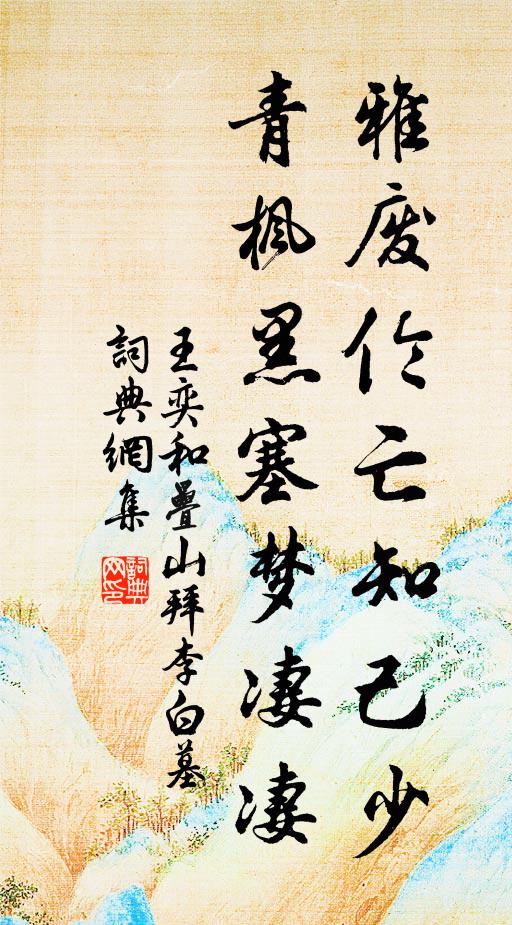 雅废伶亡知己少
青枫黑塞梦凄凄
王奕和疊山拜李白墓
詞典網集
詞典网印